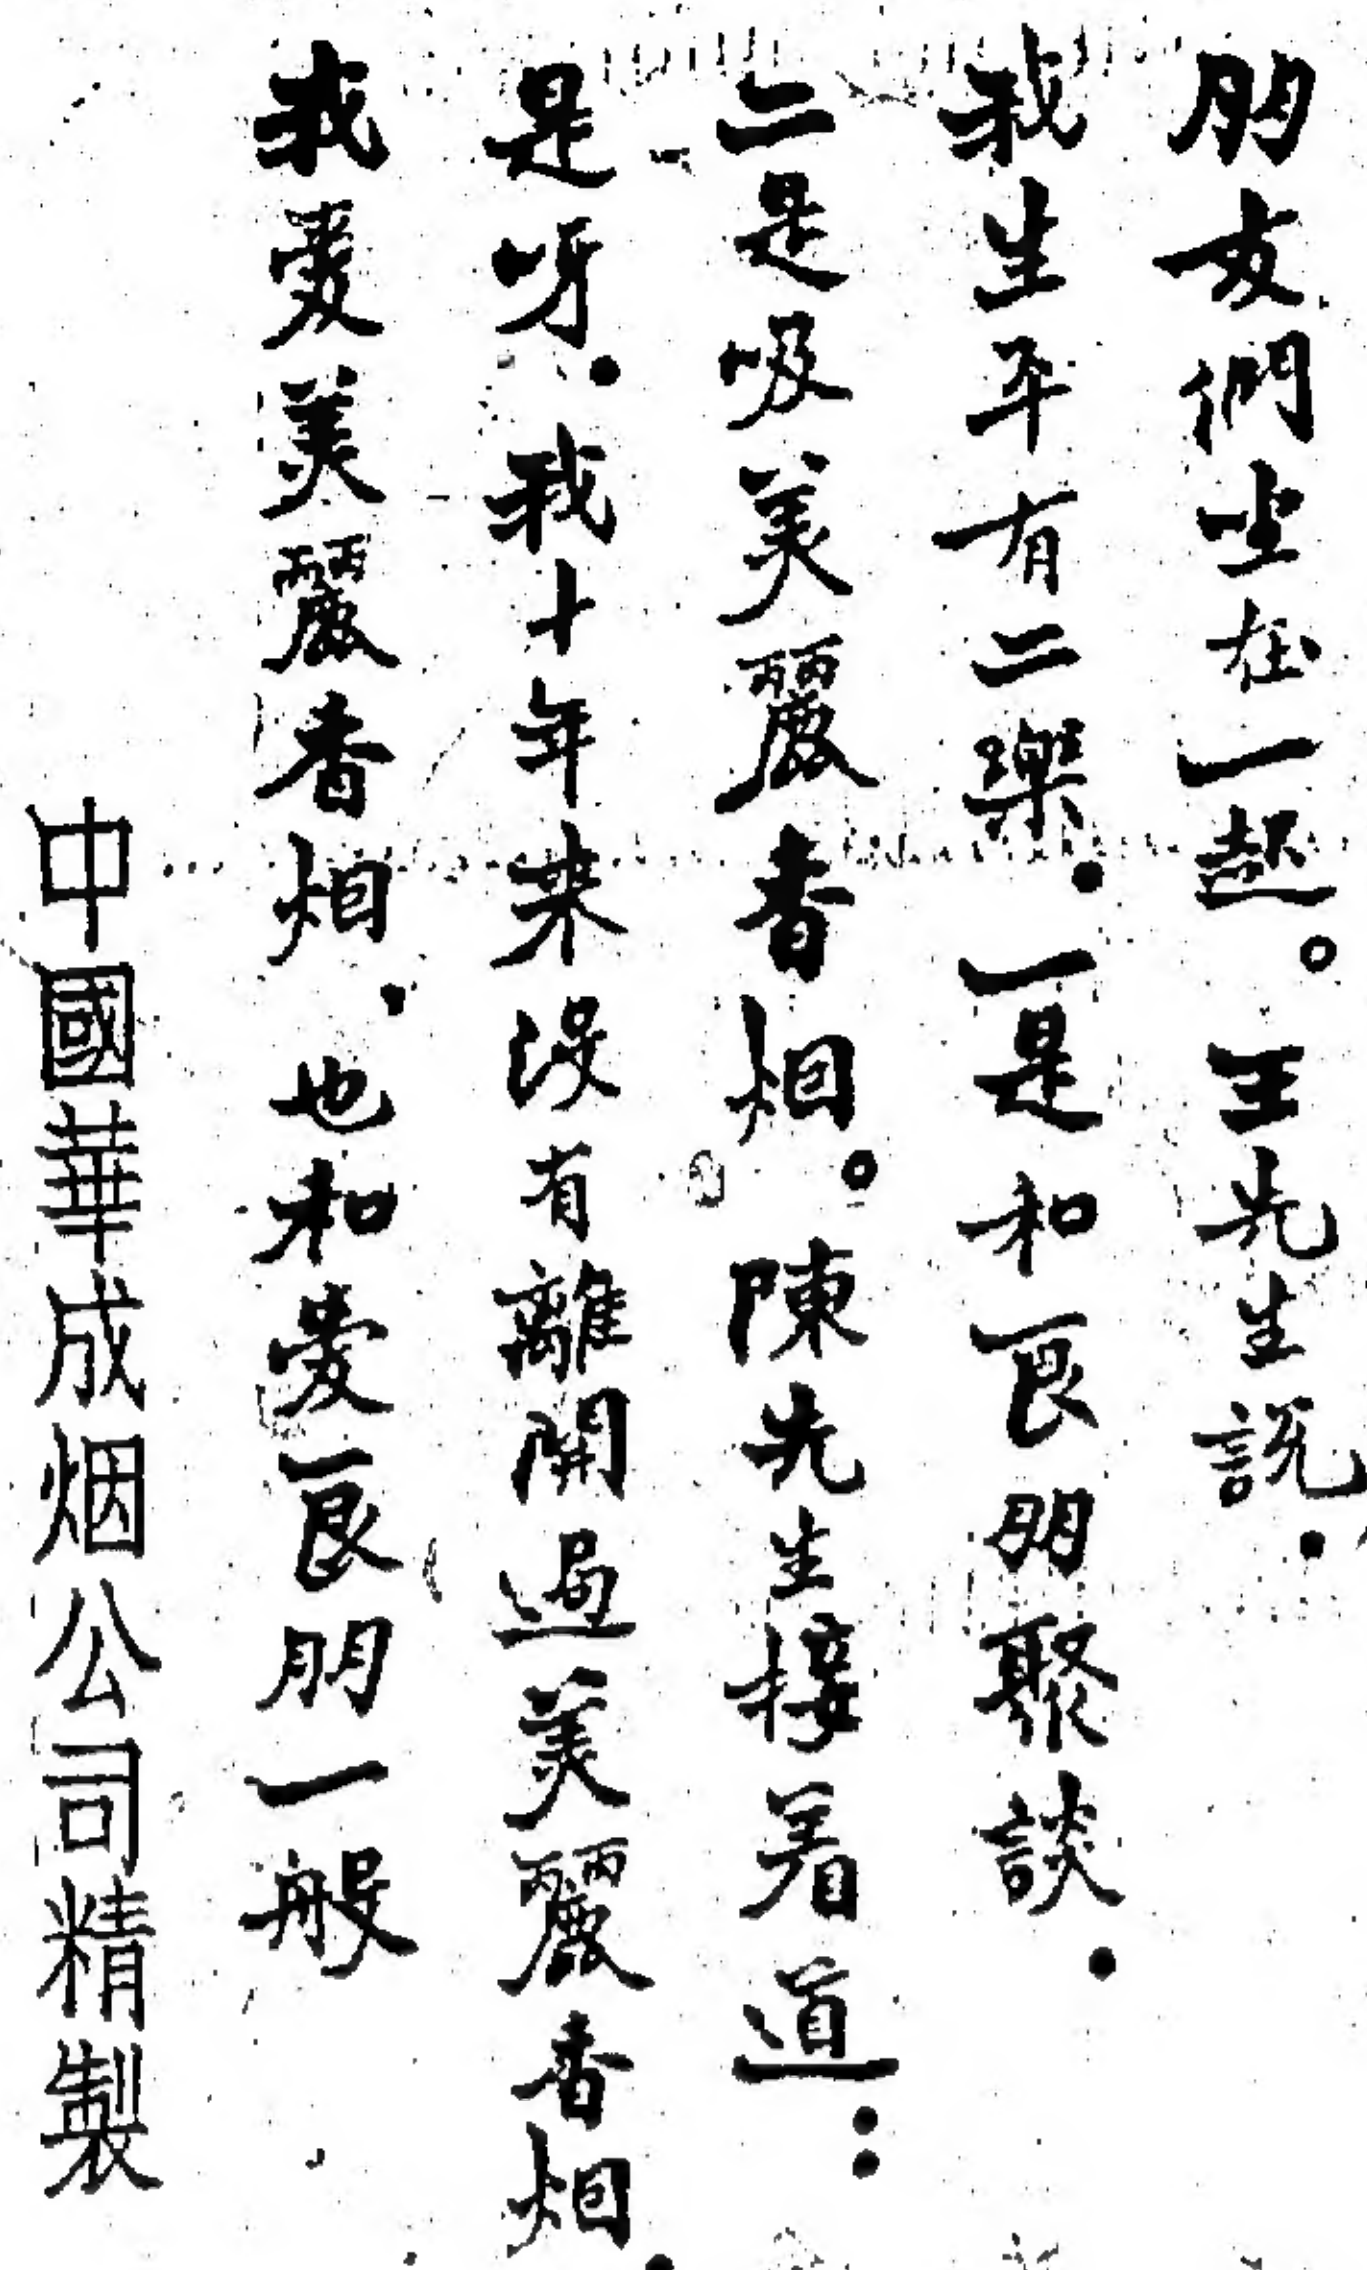 朋友們坐在一起。王先生説.
我生平有二樂.一是和良朋聚談.
二是吸美麗香烟。陳先生接着道:
是呀.我十年来没有離開過美麗香烟.
我愛美麗香烟.也和愛良朋一般
中國華成烟公司精製